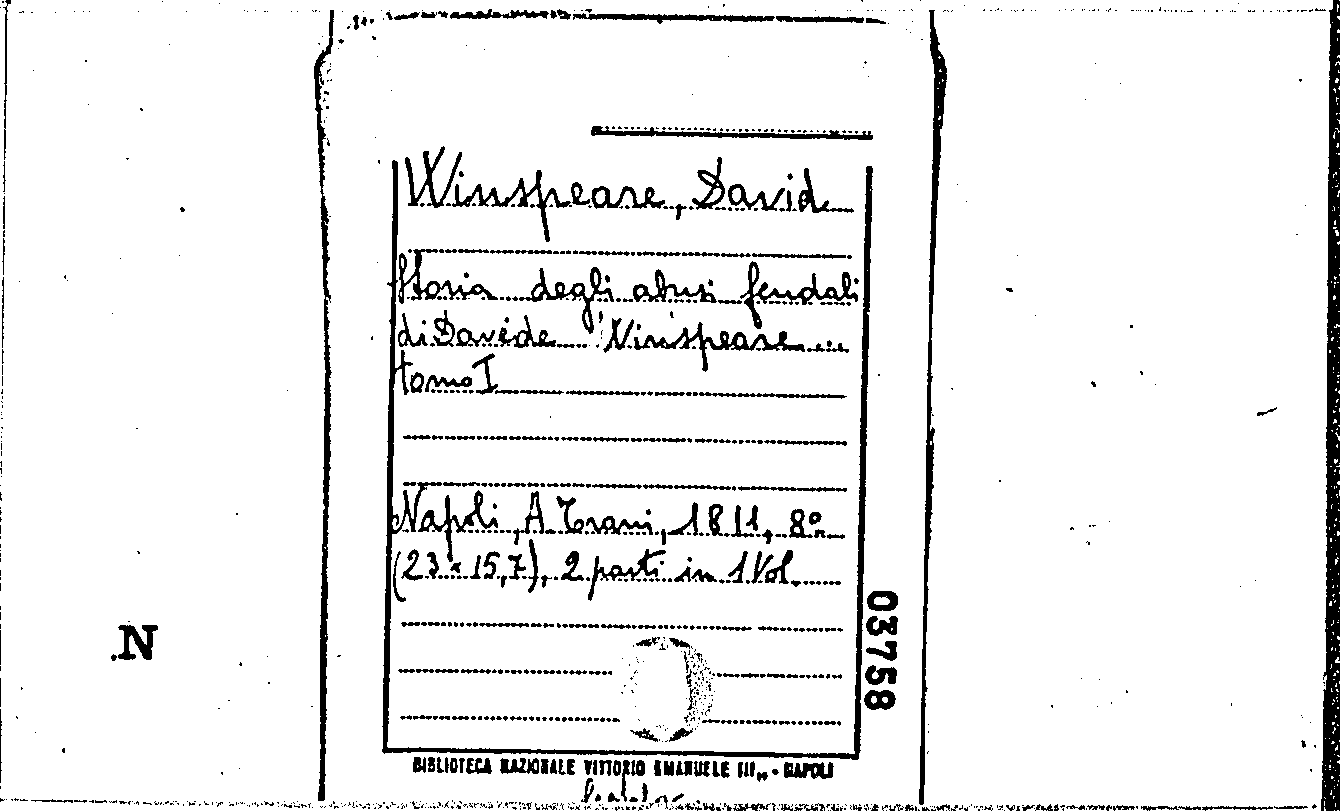 Winspeare, David
Storia degli abusi feudali
di Davide Winspeare...
tomo I
Napoli, A Trani, 1811, 8°
(23 x 15,7), 2 parti in 1 Vol.
03758
N
BIBLIOTECA NAZIONALE VITTORIO EMANUELE III„ - NAPOLI